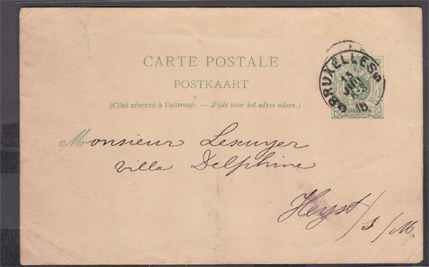 CARTE POSTALE
POSTKAART
(Côté réservé à l'adresse. — Zijde voor het adres alleen.)
BRUXELLES
15
10
Monsieur Lescuyer
Villa Delphine
Heyst / s / M.